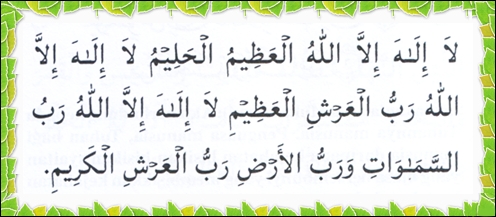 لاَ إِلَـٰهَ إِلاَّ اللهُ الْعَظِيمُ الْحَلِيْمُ لاَ إِلَـٰهَ إِلاَّ
اللهُ رَبُّ الْعَرْشِ الْعَظِيْمِ لاَ إِلَـٰهَ إِلاَّ اللهُ رَبُّ
السَّمَـٰوَاتِ وَرَبُّ الأَرْضِ رَبُّ الْعَرْشِ الْكَرِيْمِ.